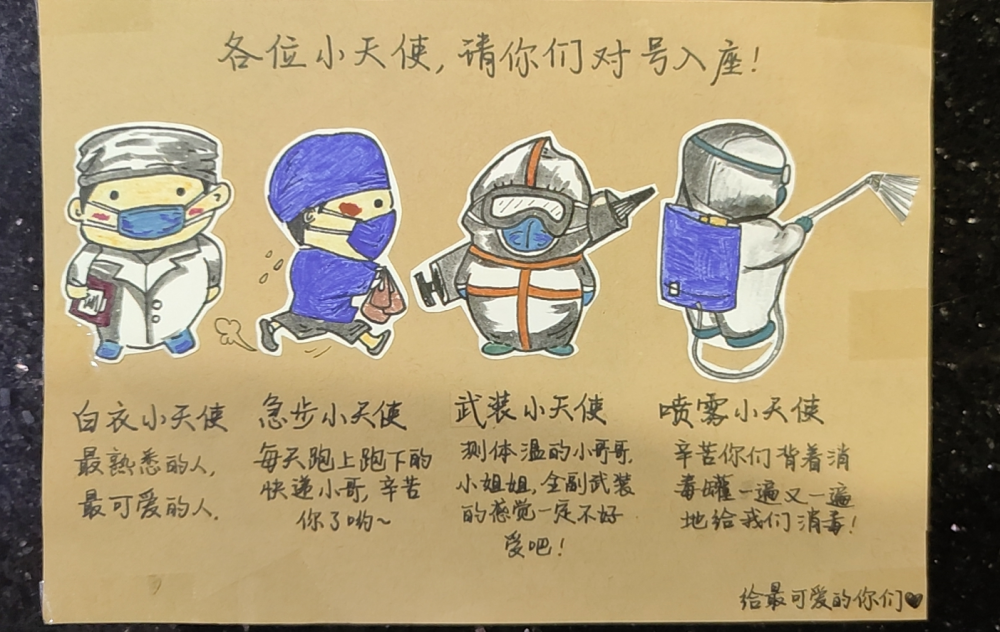 各位小天使,请你们对号入座!
白衣小天使
最熟悉的人,
最可爱的人.
急步小天使
每天跑上跑下的
快递小哥,辛苦
你了哟~
武装小天使
测体温的小哥哥,
小姐姐,全副武装
的感觉一定不好
受吧!
喷雾小天使
辛苦你们背着消
毒罐一遍又一遍
地给我们消毒!
给最可爱的你们♥